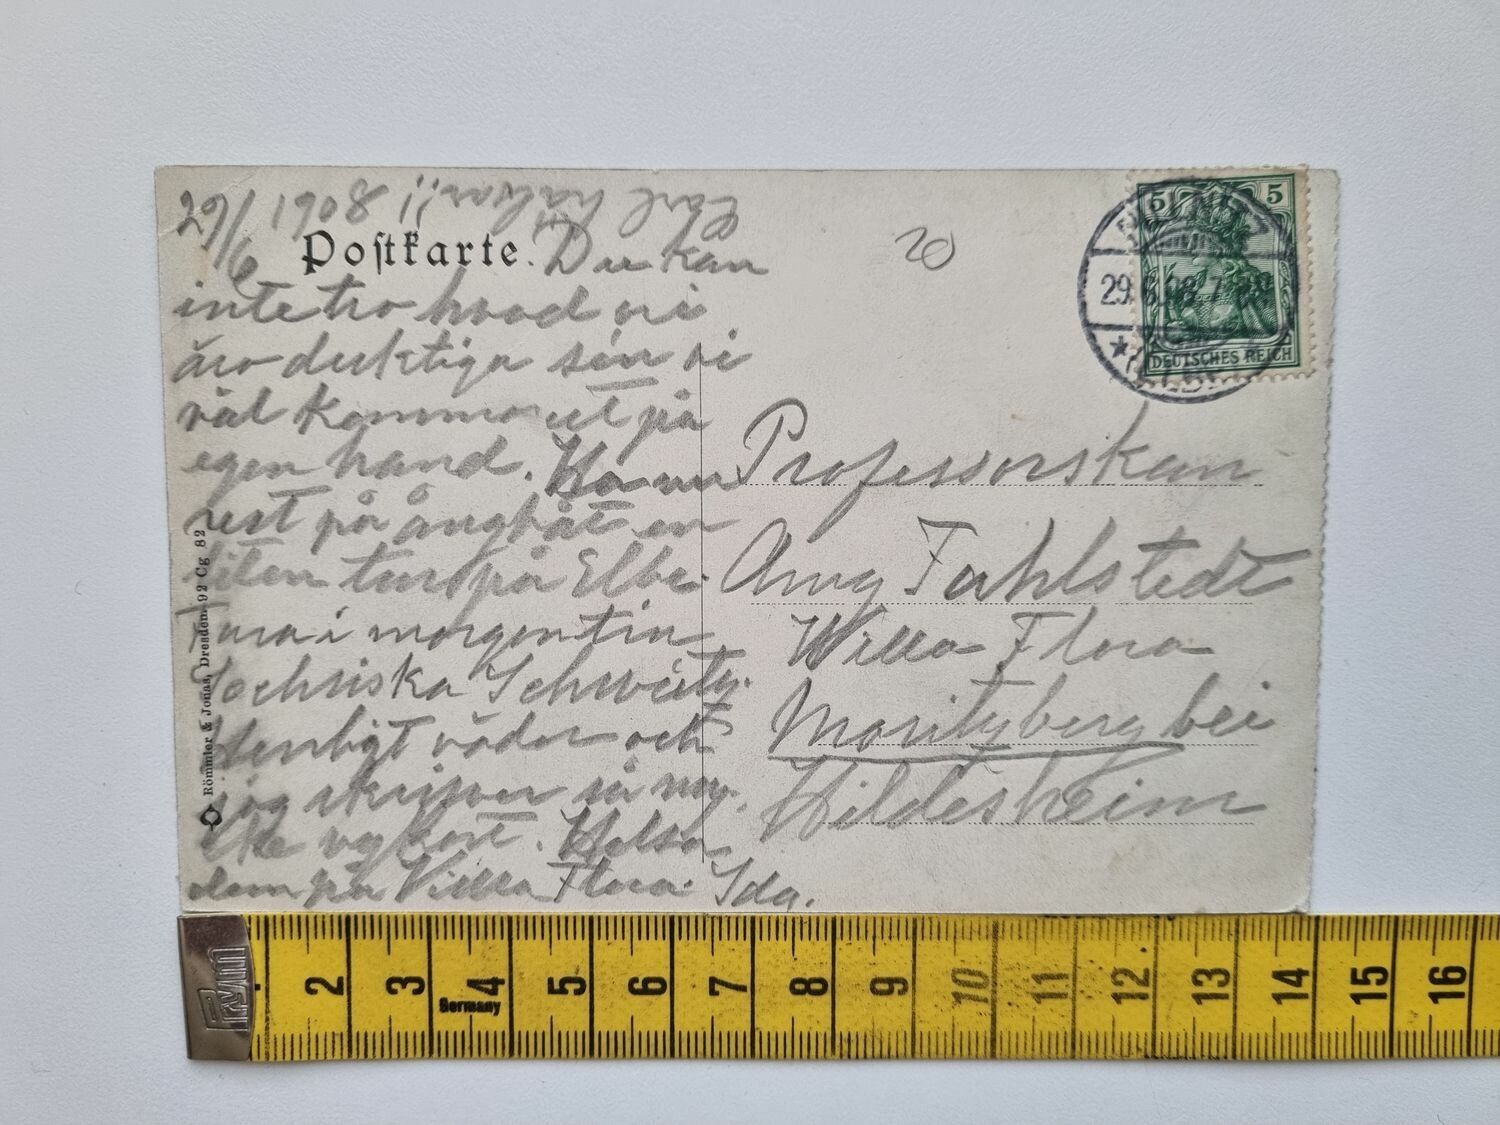 29/6 1908
Carl hälsar!!
Postkarte.
Du kan
inte tro hvad vi
äro duktiga sen vi
väl kommo ut på
egen hand. Ha nu
rest på ångbåt en
liten tur på Elbe.
Fara i morgon till
Sechsiska Schweitz.
Herrligt väder och
jag skrifver så myc
ket vykort. Helsa
dem på Villa Flora. Ida.
20
5 5
29.6.08.7
DEUTSCHES REICH
Professorskan
Amy Fahlstedt
Willa Flora
Moritzberg bei
Hildesheim
Römmler & Jonas, Dresden. 92 Cg 82
Prym
2 3 4 5 6 7 8 9 10 11 12 13 14 15 16
Germany